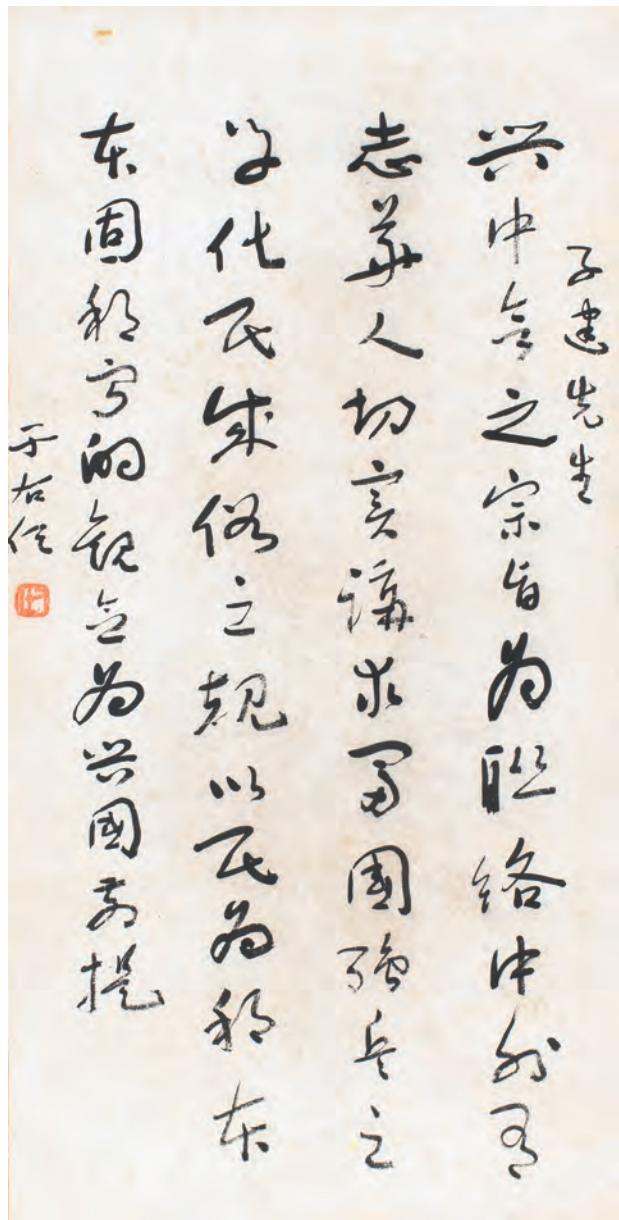 子建先生
興中會之宗旨為聯絡中外有
志華人切實講求富國強兵之
學化民成俗之規以民為邦本
本固邦寧的觀念為興國前提
于右任